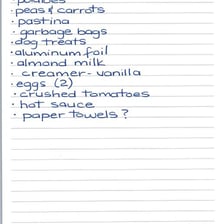 · peas & carrots
· pastina
· garbage bags
· dog treats
· aluminum foil
· almond milk
· creamer- vanilla
· eggs (2)
· crushed tomatoes
· hot sauce
· paper towels?